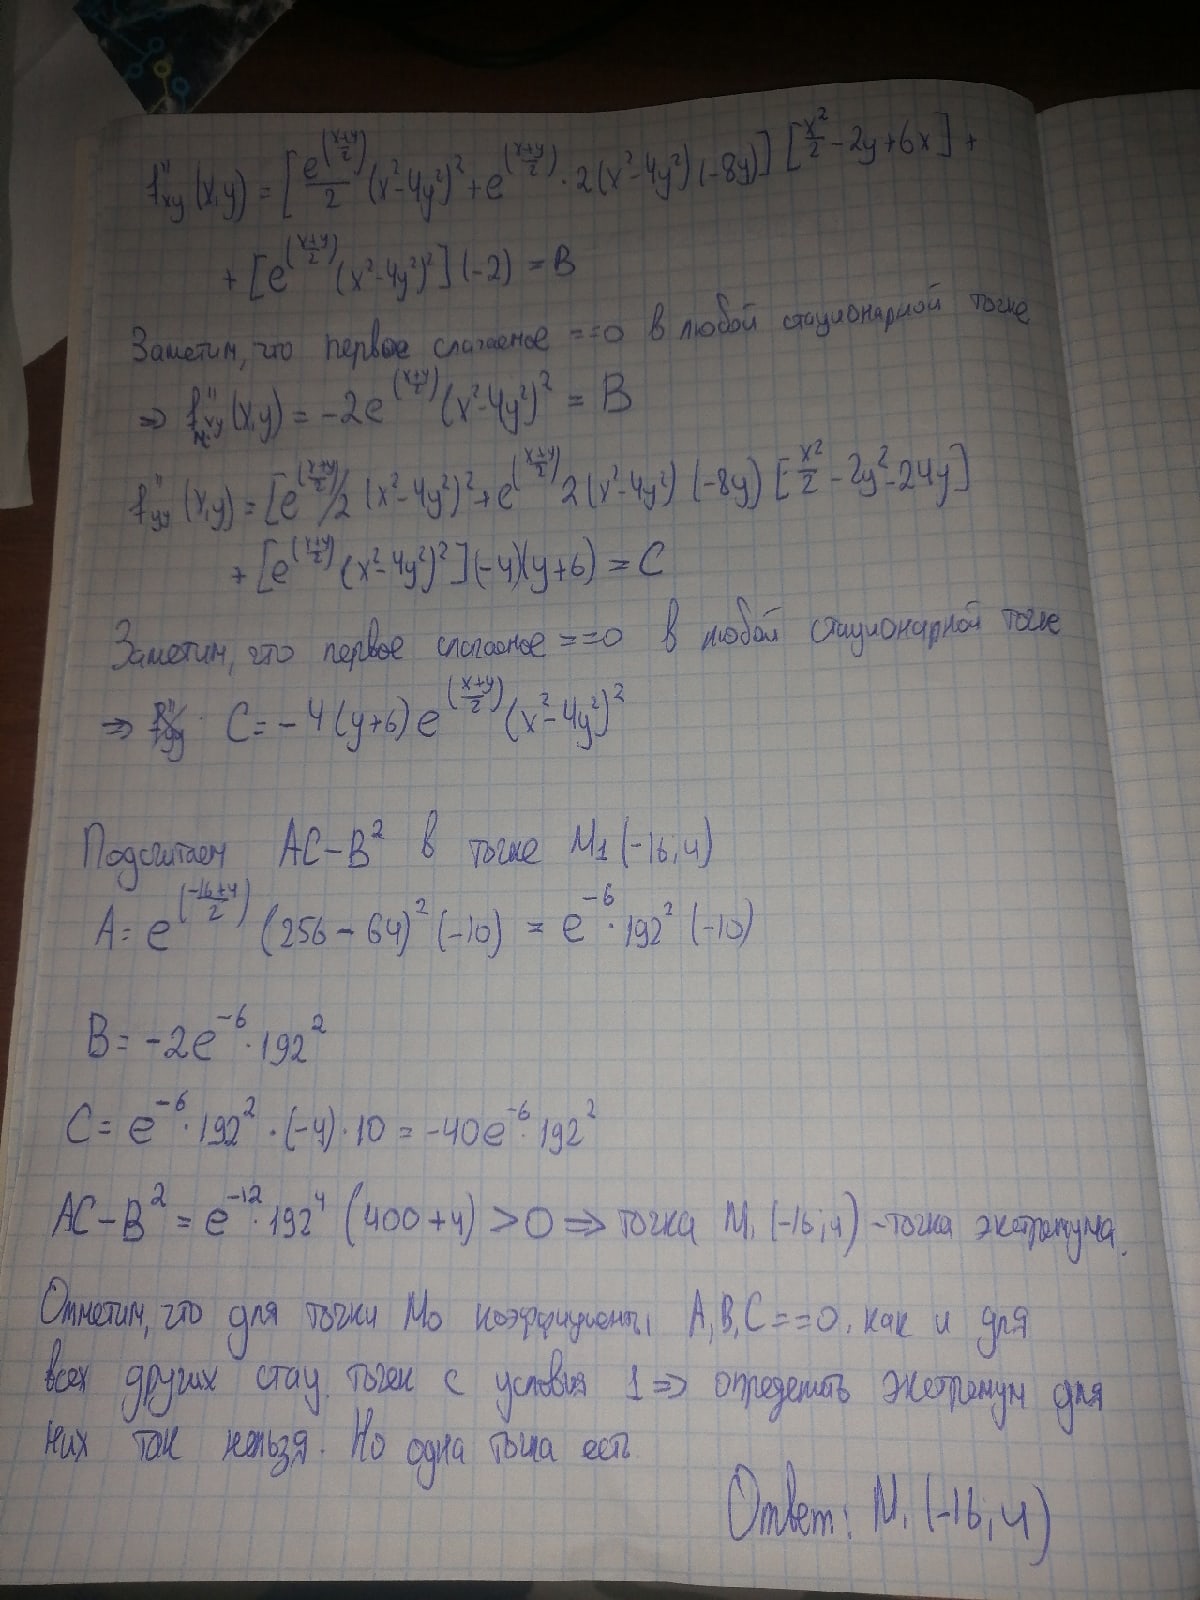 f''xy (x,y) = [e^((x+y)/2)/2 (x²-4y²)² + e^((x+y)/2) · 2(x²-4y²)(-8y)] [x²/2 - 2y + 6x] +
+ [e^((x+y)/2) (x²-4y²)²] (-2) = B
Заметим, что первое слагаемое ==0 в любой стационарной точке
⇒ f''xy (x,y) = -2e^((x+y)/2) (x²-4y²)² = B
f''yy (x,y) = [e^((x+y)/2)/2 (x²-4y²)² + e^((x+y)/2) 2(x²-4y²) (-8y) [x²/2 - 2y² - 24y]
+ [e^((x+y)/2) (x²-4y²)²] (-4)(y+6) = C
Заметим, что первое слагаемое ==0 в любой стационарной точке
⇒ C = -4(y+6) e^((x+y)/2) (x²-4y²)²
Подсчитаем AC-B² в точке M1 (-16; 4)
A = e^((-16+4)/2) (256-64)² (-10) = e^-6 · 192² (-10)
B = -2e^-6 · 192²
C = e^-6 · 192² · (-4) · 10 = -40e^-6 · 192²
AC-B² = e^-12 · 192⁴ (400+4) > 0 ⇒ точка M1 (-16; 4) - точка экстремума.
Отметим, что для точки M0 коэффициенты A, B, C ==0, как и для
всех других стац. точек с условия 1 ⇒ определить экстремум для
них так нельзя. Но одна точка есть
Ответ: M1 (-16; 4)